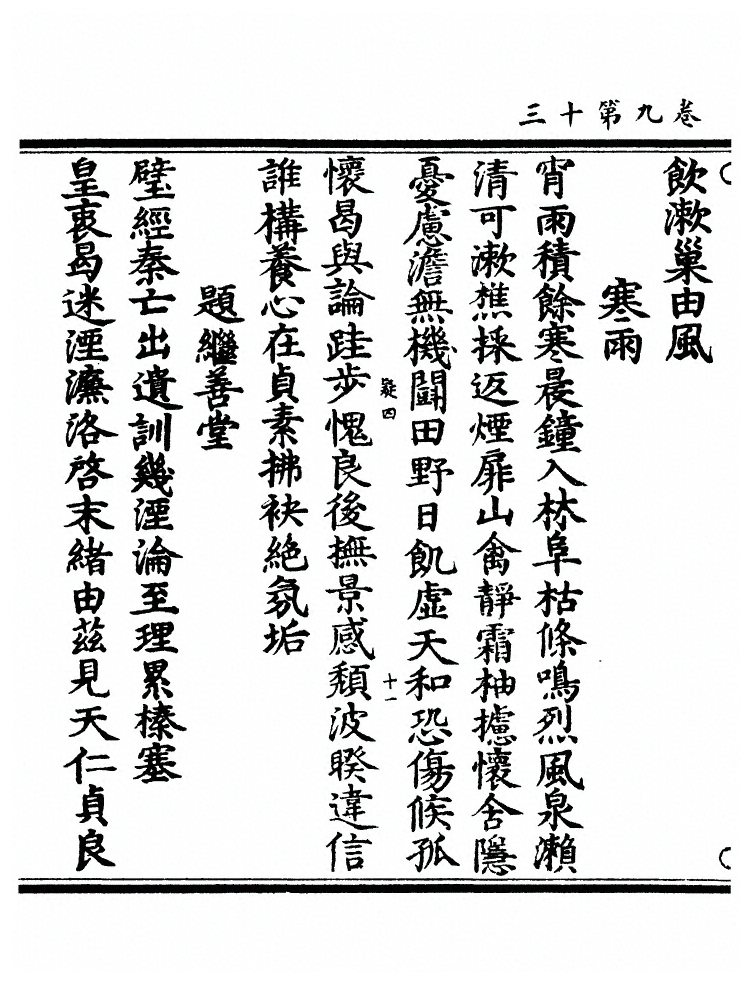 卷九第十三
飲漱巢由風
寒雨
宵雨積餘寒晨鐘入林阜枯條鳴烈風泉瀨
清可漱樵採返煙扉山禽靜霜柚攄懷舍隱
憂慮澹無機鬪田野日飢虛天和恐傷候孤
疑四
十一
懷曷與論跬步愧良後撫景感頹波睽違信
誰構養心在貞素拂袂絕氛垢
題繼善堂
璧經秦亡出遺訓幾湮淪至理累榛塞
皇衷曷迷湮濂洛啓末緒由茲見天仁貞良